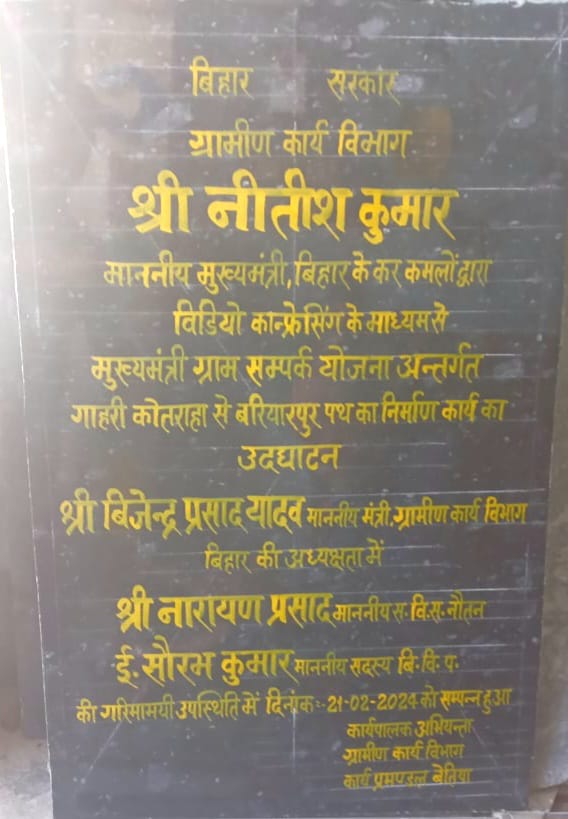 बिहार सरकार
ग्रामीण कार्य विभाग
श्री नीतीश कुमार
माननीय मुख्यमंत्री, बिहार के कर कमलों द्वारा
विडियो कान्फ्रेसिंग के माध्यम से
मुख्यमंत्री ग्राम सम्पर्क योजना अन्तर्गत
गाहरी कोतराहा से बरियारपुर पथ का निर्माण कार्य का
उदघाटन
श्री बिजेन्द्र प्रसाद यादव माननीय मंत्री, ग्रामीण कार्य विभाग
बिहार की अध्यक्षता में
श्री नारायण प्रसाद माननीय स. वि. स. नौतन
ई. सौरभ कुमार माननीय सदस्य बि. वि. प.
की गरिमामयी उपस्थिति में दिनांक:-21-02-2024 को सम्पन्न हुआ
कार्यपालक अभियन्ता
ग्रामीण कार्य विभाग
कार्य प्रमण्डल बेतिया